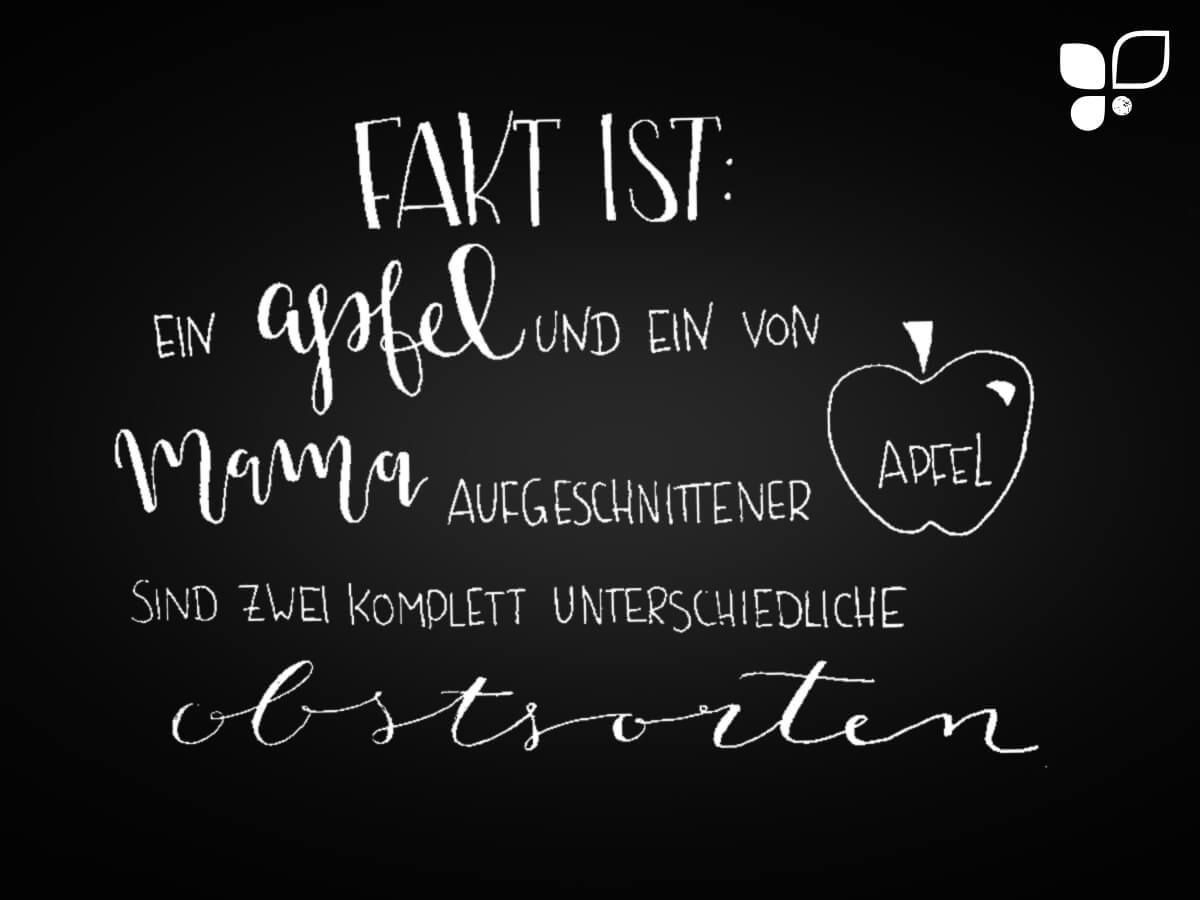 FAKT IST:
EIN apfel UND EIN VON
Mama AUFGESCHNITTENER APFEL
SIND ZWEI KOMPLETT UNTERSCHIEDLICHE
obstsorten